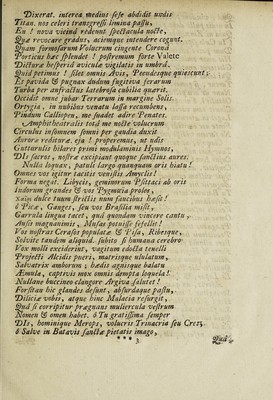 Dixerat. interea medius sese abdidit undis
Titan. nos celeri transgressi limina passu,
En ! nova visend redeunt spectacula nocte,
Quæ revocare gradus, aciemque intendere cogunt.
Quam formosarum Volucrum cingente Coronâ
Porticus hæc splendet ! postremum forte Valete
Dicturæ hesperid avicula vigilatis in umbra.
Quid petimus ? silet omnis Avis, Frondesque quiescunt;
Et pavida & pugnax dudum fugitiva ferarum
Turba per anfractus Latebrosa cubilia quærit.
Occidit omne jubar Terrarum in margine Solis.
Ortygia, in nubibus venatu lassa recumbens,
Pindum Calliopen, me suadet adire Penates.
Amphitheatralis totâ me nocte volucrum
Circulus insomnem somni per gaudia duxit
Auroræ redituræ. eja ! properemus, ut udis
Gutturulis hilares primi modulaminis Hymnos,
DIs sacros, nostræ excipiant quoque sanctius aures.
Nulla loquax, patuli largo quamquam oris hiatu !
Omnes vos igitur tacitis venistis Amyclis!
Forma negat. Libycis, geminorum Psittaci ab oris
Indorum grandes & vos Pygmæia proles,
Tam dulce tuum strictis num faucibus hæsit!
ô Picæ, Ganges, seu vos Brasilia misit,
Garrula lingua tacet, quâ quondam vincere cantu,
Ausis magnanimis, Musas potuisse fefellit!
Vos nostras Cerasos populatæ & Pisa, Ribesque,
Solvite tandem aliquid. subito si humana cerebro
Vox molli exciderit, vagitum edocta tenelli
Projecti Alcidis pueri, matrisque ululatum,
Salvatrix amborum ; hædis agnisque balatu
Æmula, captivis mox omnis dempta loquela!
Nullane buccineo clangore Argiva salutet !
Forsitan hic glandes desunt, absurdaque pastu,
Diliciæ vobis, atque hinc Malacia resurgit,
Quâ si corripitur prægnans muliercula vestrum
Nomen & omen habet. ô Tu gratissima semper
DIs, hominique Merops, volucris Trinacria seu Cres;
ô Salve in Batavis sanctæ pietatis imago,
*** 3 Quâ